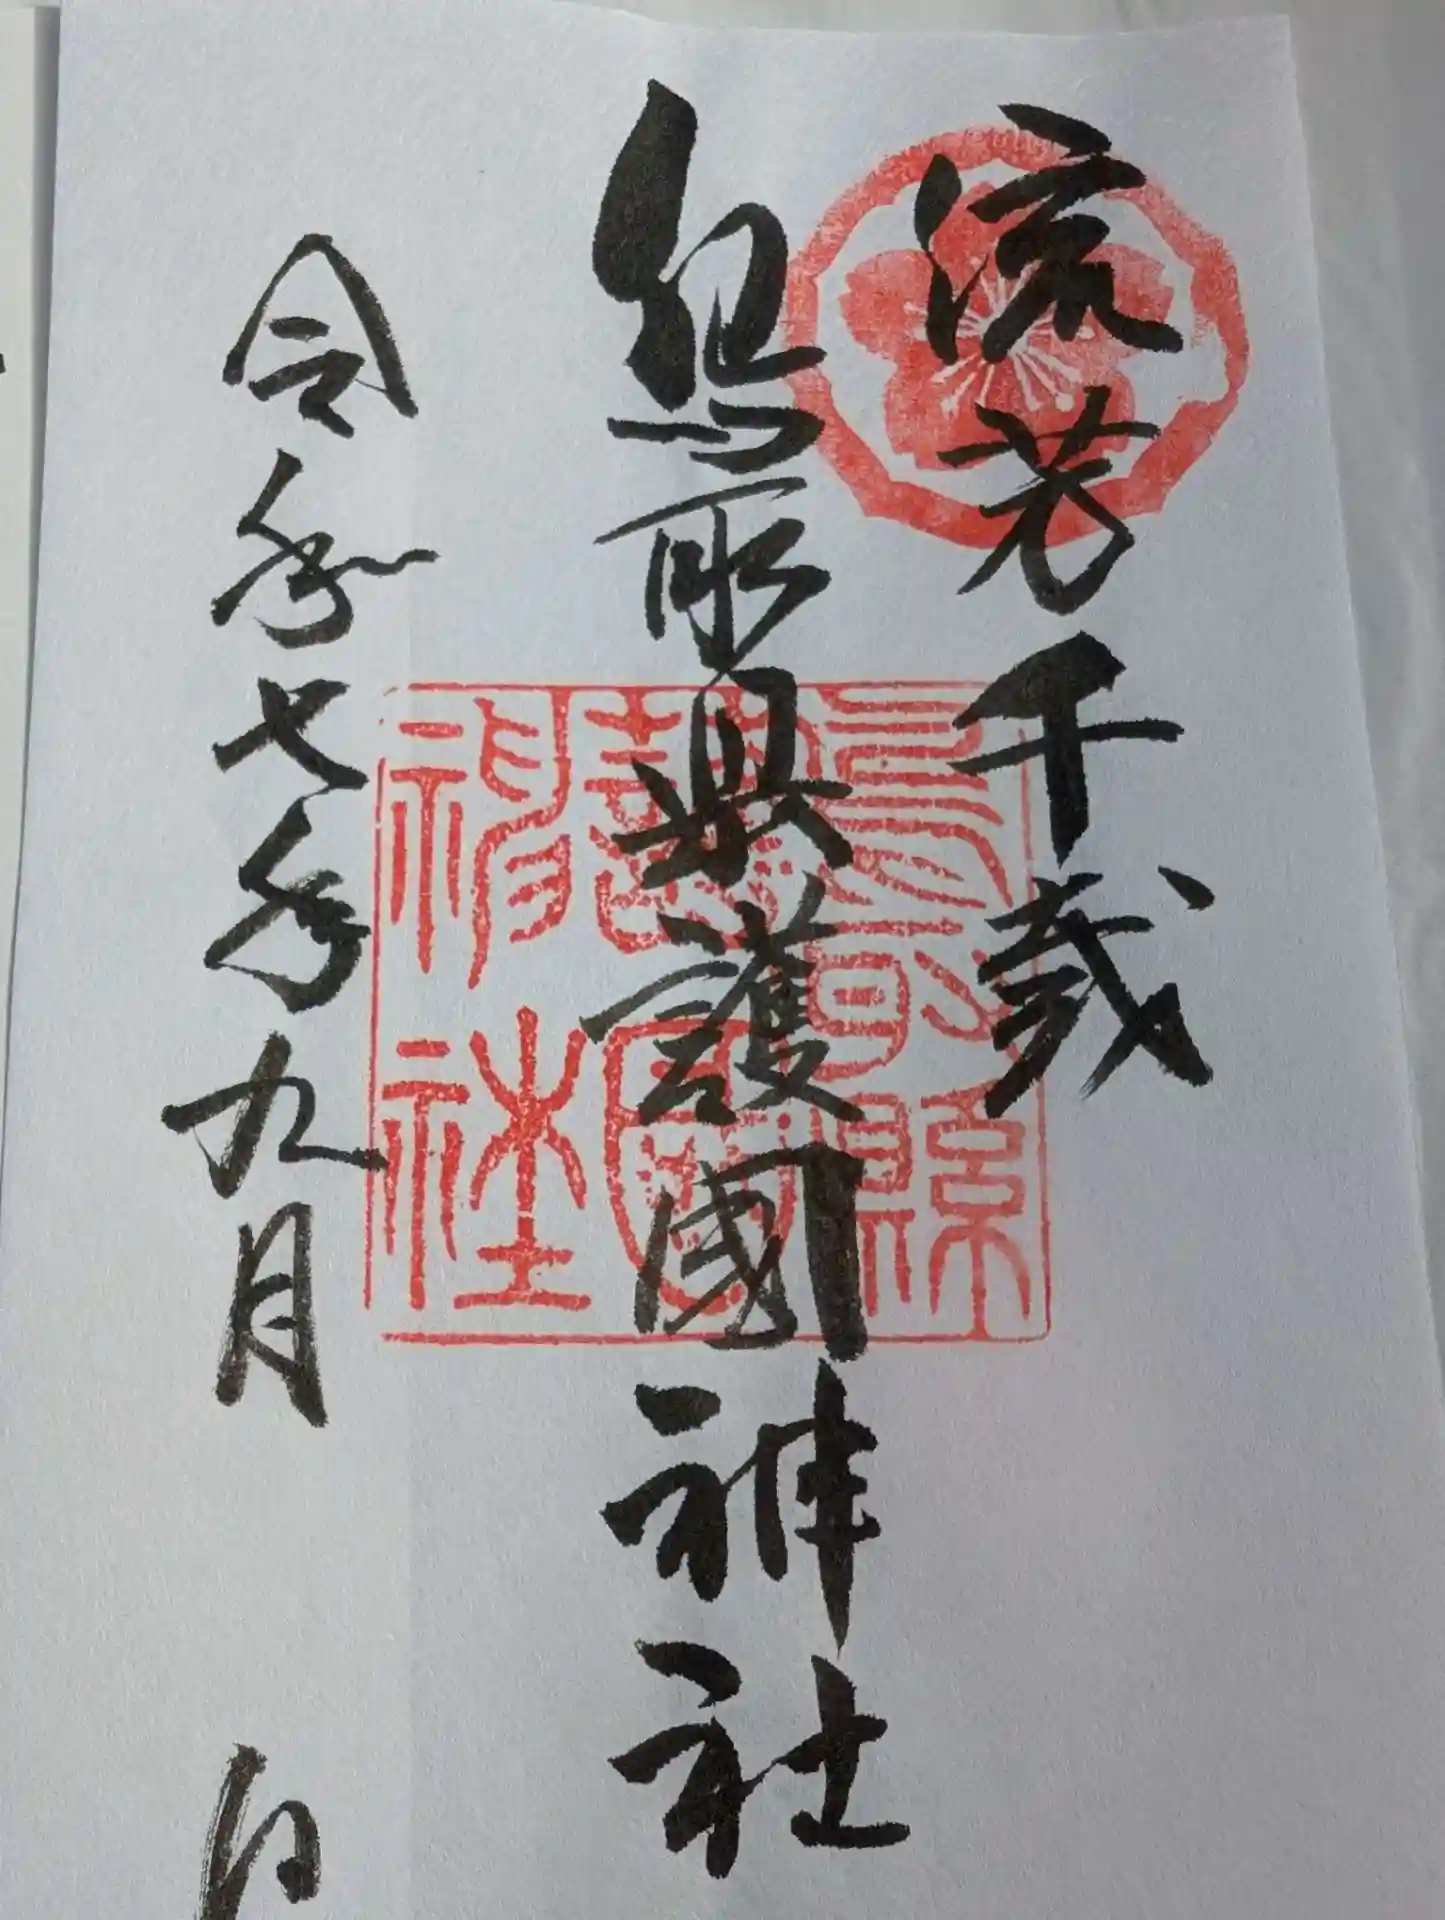 流芳千歳
鳥取県護國神社
令和七年九月 日
鳥取縣
護國
神社